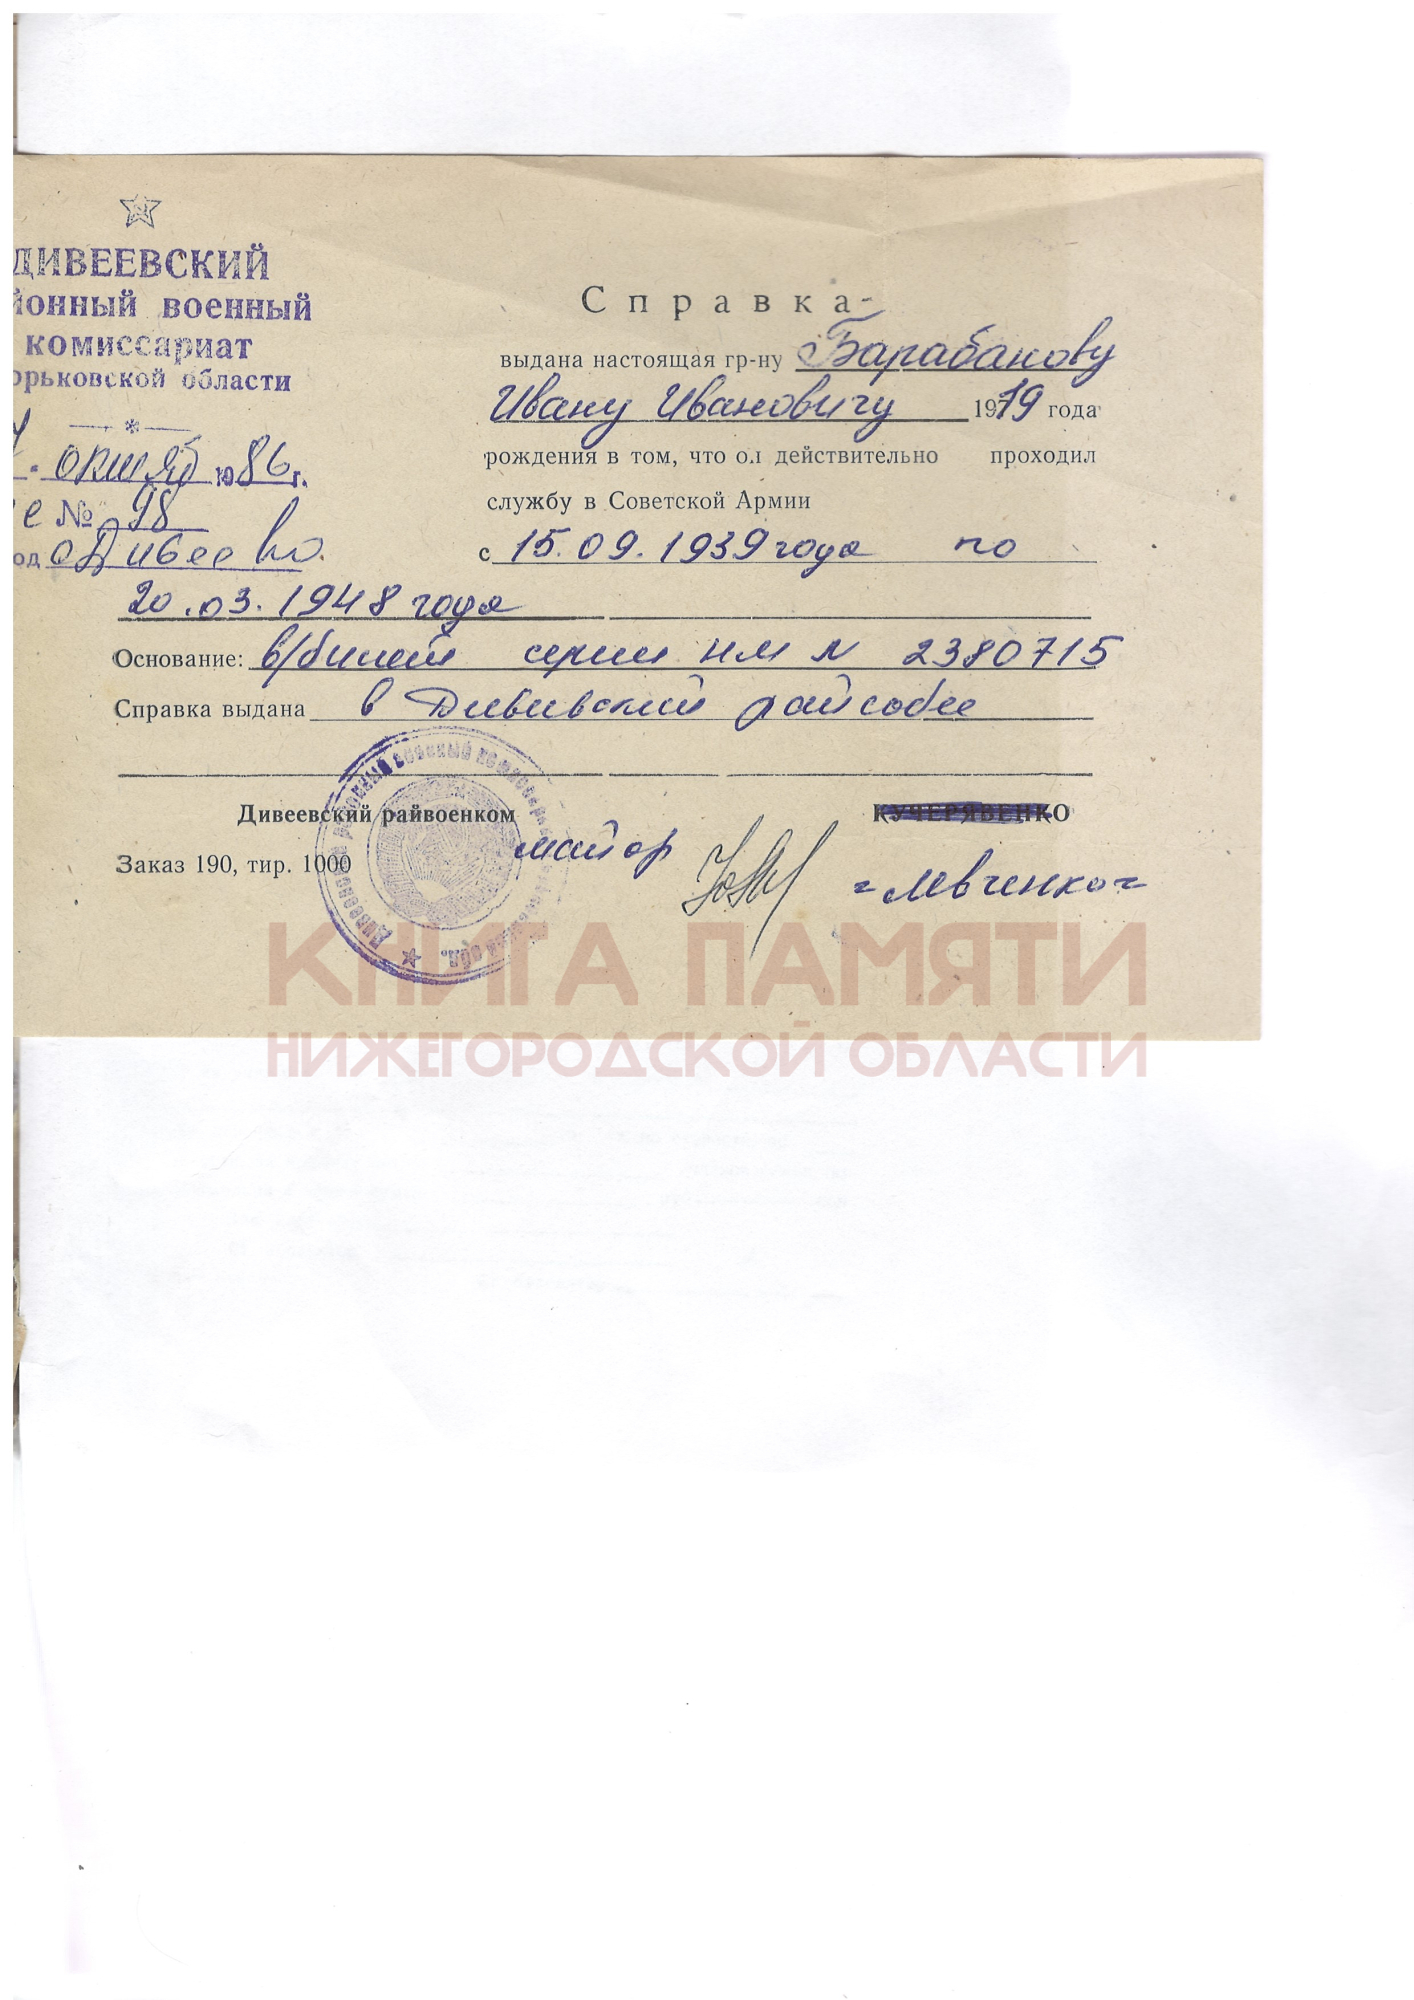 ДИВЕЕВСКИЙ
йонный военный
комиссариат
орьковской области
октяб 1986 г.
№ 98
од с Дивеево
Справка
выдана настоящая гр-ну Барабанову
Ивану Ивановичу 1919 года
рождения в том, что он действительно проходил
службу в Советской Армии
с 15.09.1939 года по
20.03.1948 года
Основание: в/билет серии НМ N 2380715
Справка выдана в Дивеевский райсобес
Дивеевский райвоенком КУЧЕРЯВЕНКО
майор =Левченко=
Заказ 190, тир. 1000
КНИГА ПАМЯТИ
НИЖЕГОРОДСКОЙ ОБЛАСТИ